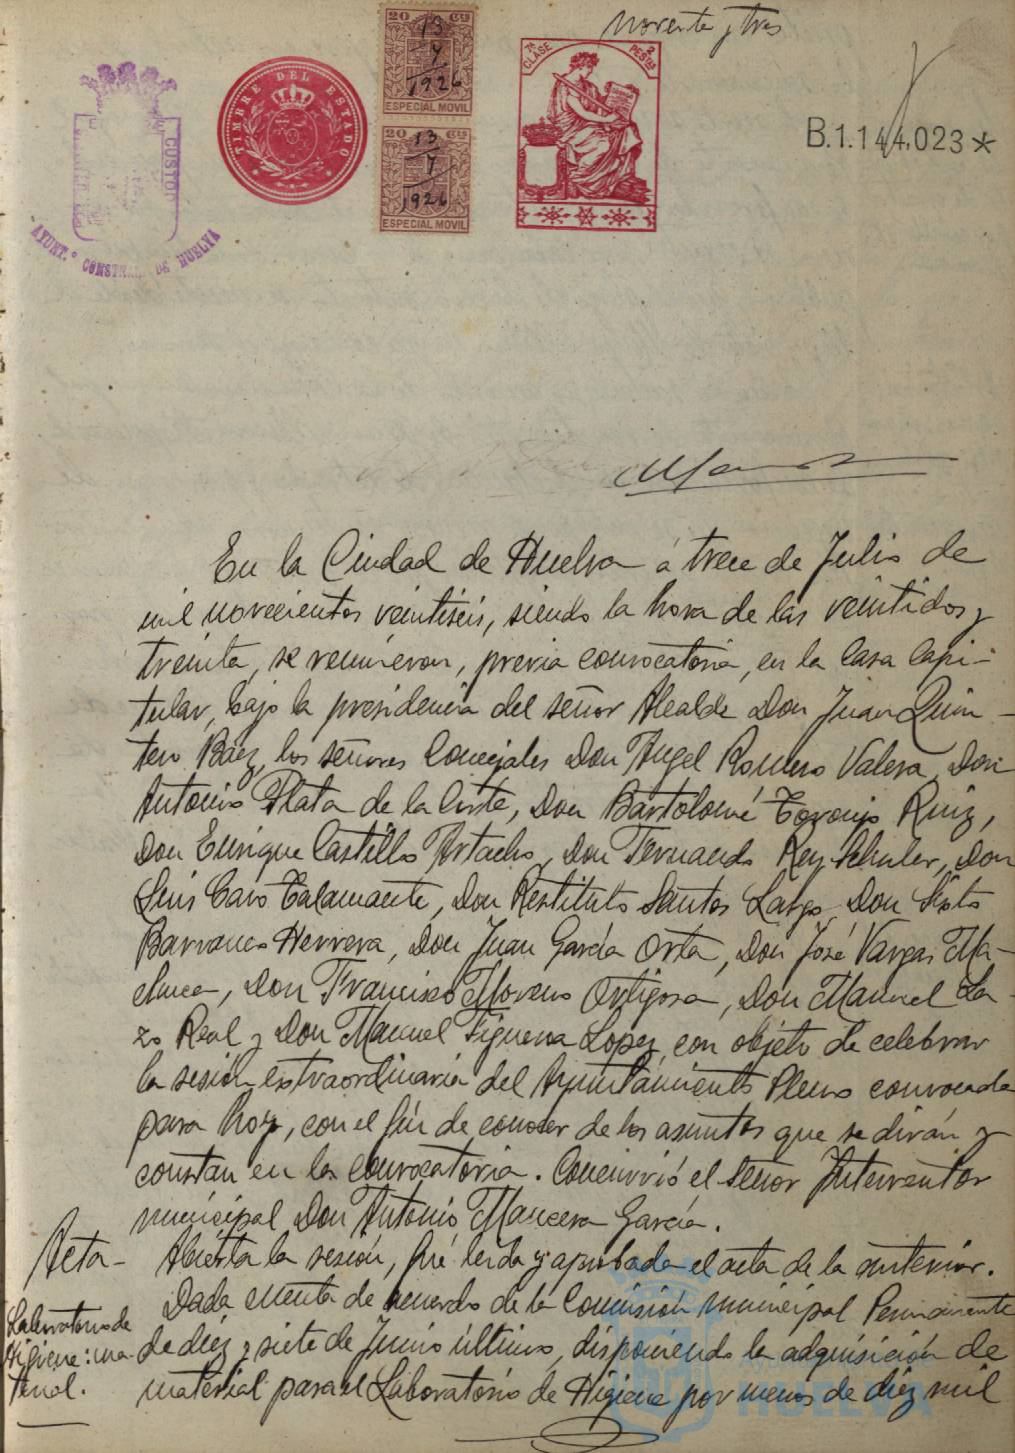 noventa y tres
20 Cts
13
7
1926
ESPECIAL MOVIL
20 Cts
13
7
1926
ESPECIAL MOVIL
TIMBRE DEL ESTADO
7ª CLASE
2 PESTAS
B.1.144.023*
CUSTOD
AYUNT.º CONSTNAL DE HUELVA
En la Ciudad de Huelva á trece de Julio de
mil novecientos veintiseis, siendo la hora de las veintidos y
treinta, se reunieron, previa convocatoria, en la Casa Capi-
tular, bajo la presidencia del señor Alcalde Don Juan Quin-
tero Báez, los señores Concejales Don Angel Romero Valera, Don
Antonio Plata de la Corte, Don Bartolomé Toronjo Ruiz,
Don Enrique Castillo Artacho, Don Fernando Rey Schuler, Don
Luis Caro Talamante, Don Restituto Santos Largo, Don Sixto
Barranco Herrera, Don Juan García Orta, Don José Vargas Ma-
chuca, Don Francisco Moreno Ortigosa, Don Manuel La-
zo Real y Don Manuel Figueroa López, con objeto de celebrar
la sesión extraordinaria del Ayuntamiento Pleno convocada
para hoy, con el fin de conocer de los asuntos que se dirán y
constan en la convocatoria. Concurrió el señor Interventor
municipal Don Antonio Mancera García.
Acta- Abierta la sesión, fué leida y aprobada el acta de la anterior.
Dada cuenta de acuerdo de la Comisión municipal Permanente
Laboratorio de
Higiene: ma-
terial.
de diez y siete de Junio último, disponiendo la adquisición de
material para el Laboratorio de Higiene por menos de diez mil
HUELVA